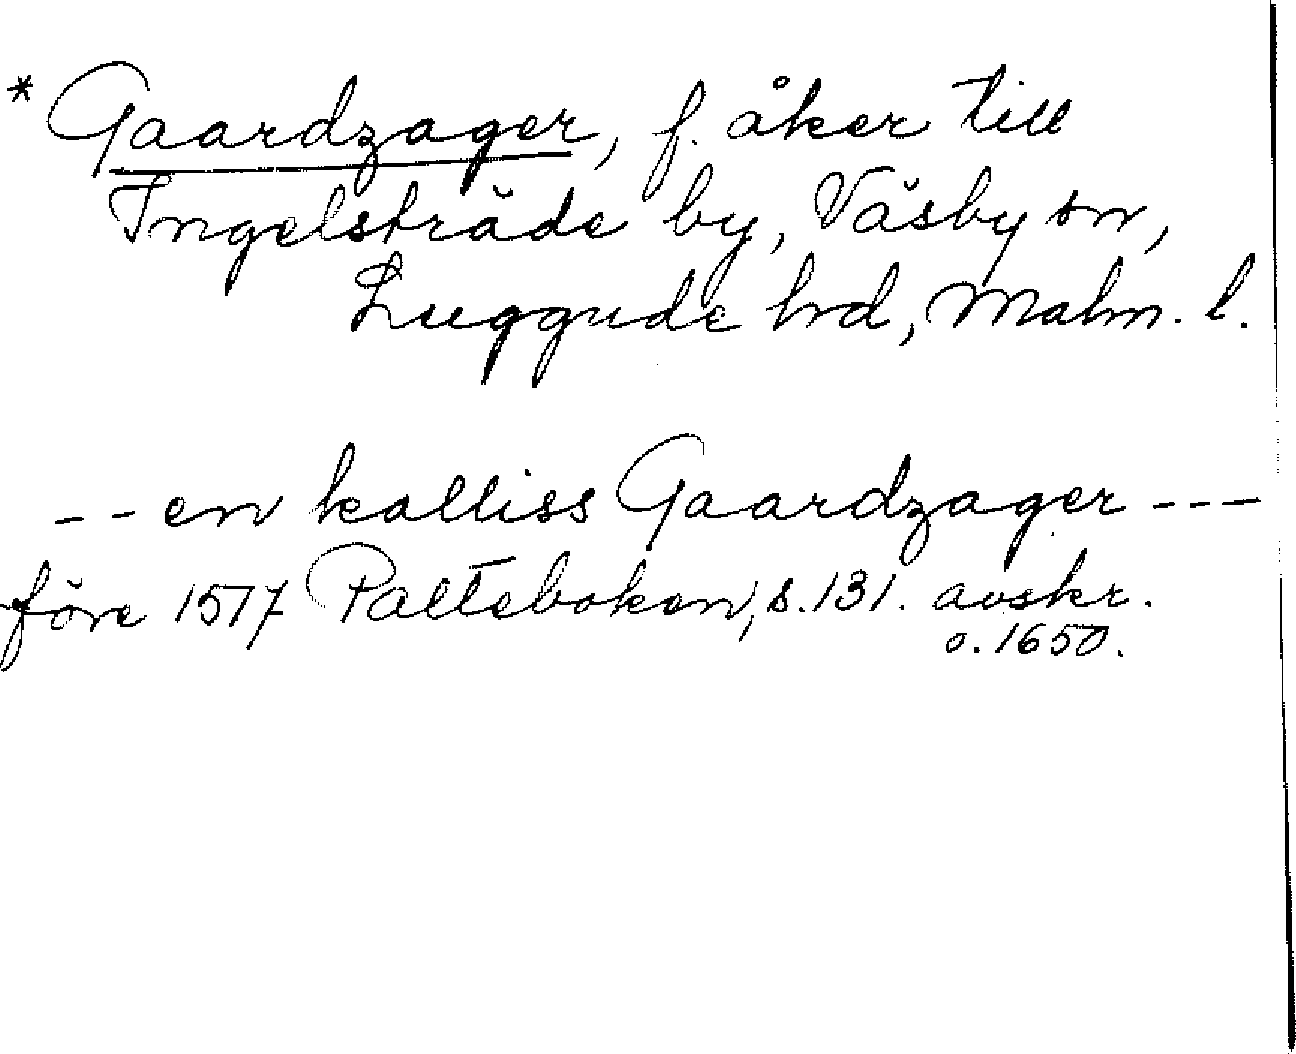 * Gaardzager, f. åker till
Ingelsträde by, Väsby sn,
Luggude hrd, Malm. l.
-- en kalliss Gaardzager ---
före 1517 Palteboken, s. 131. avskr.
o. 1650.